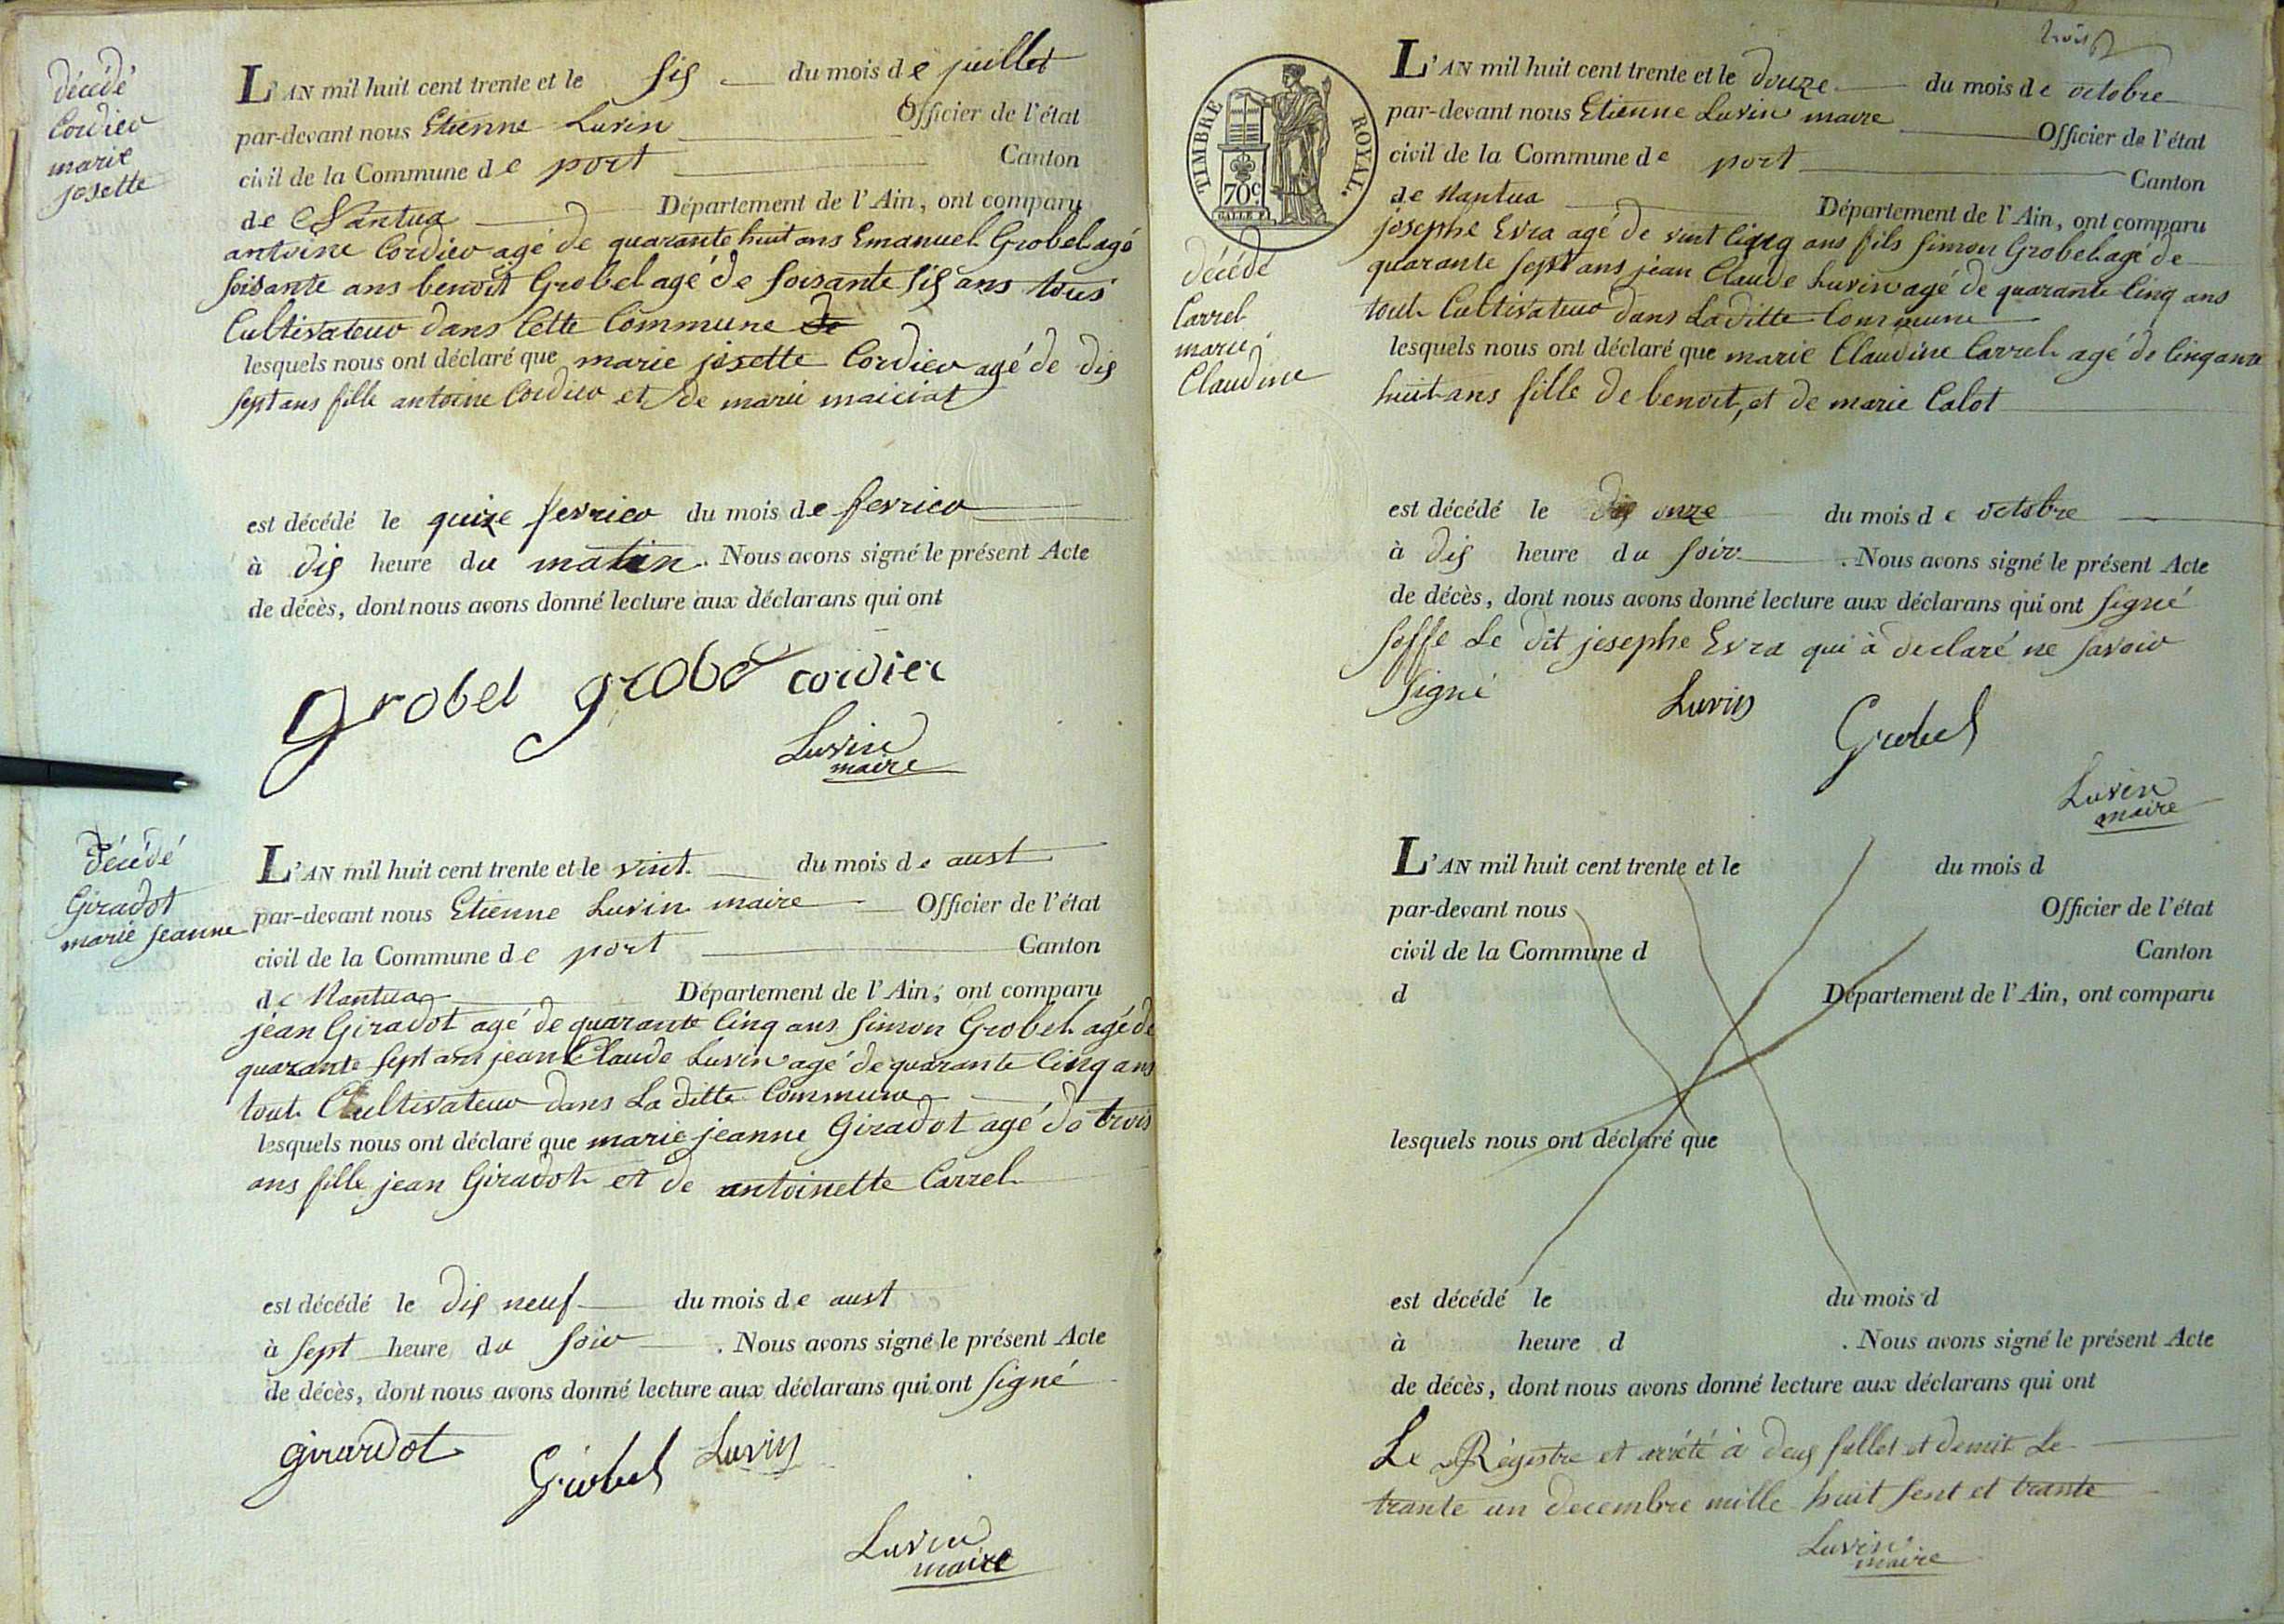 décédé
Cordier
marie
josette
L'AN mil huit cent trente et le sis du mois de juillet
par-devant nous Etienne Luvin Officier de l'état
civil de la Commune de port Canton
de Nantua Département de l'Ain, ont comparu
antoine Cordier agé de quarante huit ans Emanuel Grobel agé
soisante ans benoit Grobel agé de soisante sis ans tous
Cultivateur dans Cette Commune de
lesquels nous ont déclaré que marie josette Cordier agé de dis
sept ans fille antoine Cordier et de marie maiciat
est décédé le quize fevrier du mois de fevrier
à dis heure du matin. Nous avons signé le présent Acte
de décès, dont nous avons donné lecture aux déclarans qui ont
grobel grobel cordier
Luvin
maire
décédé
Giradot
marie jeanne
L'AN mil huit cent trente et le vint du mois de aust
par-devant nous Etienne Luvin maire Officier de l'état
civil de la Commune de port Canton
de Nantua Département de l'Ain, ont comparu
jean Giradot agé de quarante Cinq ans Simon Grobel agé de
quarante sept ans jean Claude Luvin agé de quarante Cinq ans
tout Cultivateur dans La ditte Commune
lesquels nous ont déclaré que marie jeanne Giradot agé de trois
ans fille jean Giradot et de antoinette Carrel
est décédé le dis neuf du mois de aust
à sept heure du soir. Nous avons signé le présent Acte
de décès, dont nous avons donné lecture aux déclarans qui ont signé
girardot Grobel Luvin
Luvin
maire
trois
TIMBRE ROYAL.
70c
décédé
Carrel
marie
Claudine
L'AN mil huit cent trente et le douze du mois de octobre
par-devant nous Etienne Luvin maire Officier de l'état
civil de la Commune de port Canton
de Nantua Département de l'Ain, ont comparu
josephe Evra agé de vint Cinq ans fils Simon Grobel agé de
quarante sept ans jean Claude Luvin agé de quarante Cinq ans
tout Cultivateur dans La ditte Commune
lesquels nous ont déclaré que marie Claudine Carrel agé de Cinqante
huit ans fille de benoit, et de marie Calot
est décédé le dis onze du mois de octobre
à dis heure du soir. Nous avons signé le présent Acte
de décès, dont nous avons donné lecture aux déclarans qui ont signé
soffe Le dit josephe Evra qui à declaré ne savoir
signé Luvin Grobel
Luvin
maire
L'AN mil huit cent trente et le du mois d
par-devant nous Officier de l'état
civil de la Commune d Canton
d Département de l'Ain, ont comparu
lesquels nous ont déclaré que
est décédé le du mois d
à heure d . Nous avons signé le présent Acte
de décès, dont nous avons donné lecture aux déclarans qui ont
Le Régistre et arrété à deus fullet et demit Le
trante un decembre mille huit sent et trante
Luvin
maire